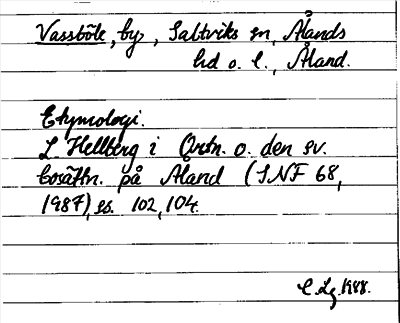 Vassböle, by, Saltviks sn, Ålands
hd o. l., Åland.
Etymologi.
L. Hellberg i Ortn. o. den sv.
bosättn. på Åland (SNF 68,
1987), ss. 102, 104.
C. Lg. 1988.